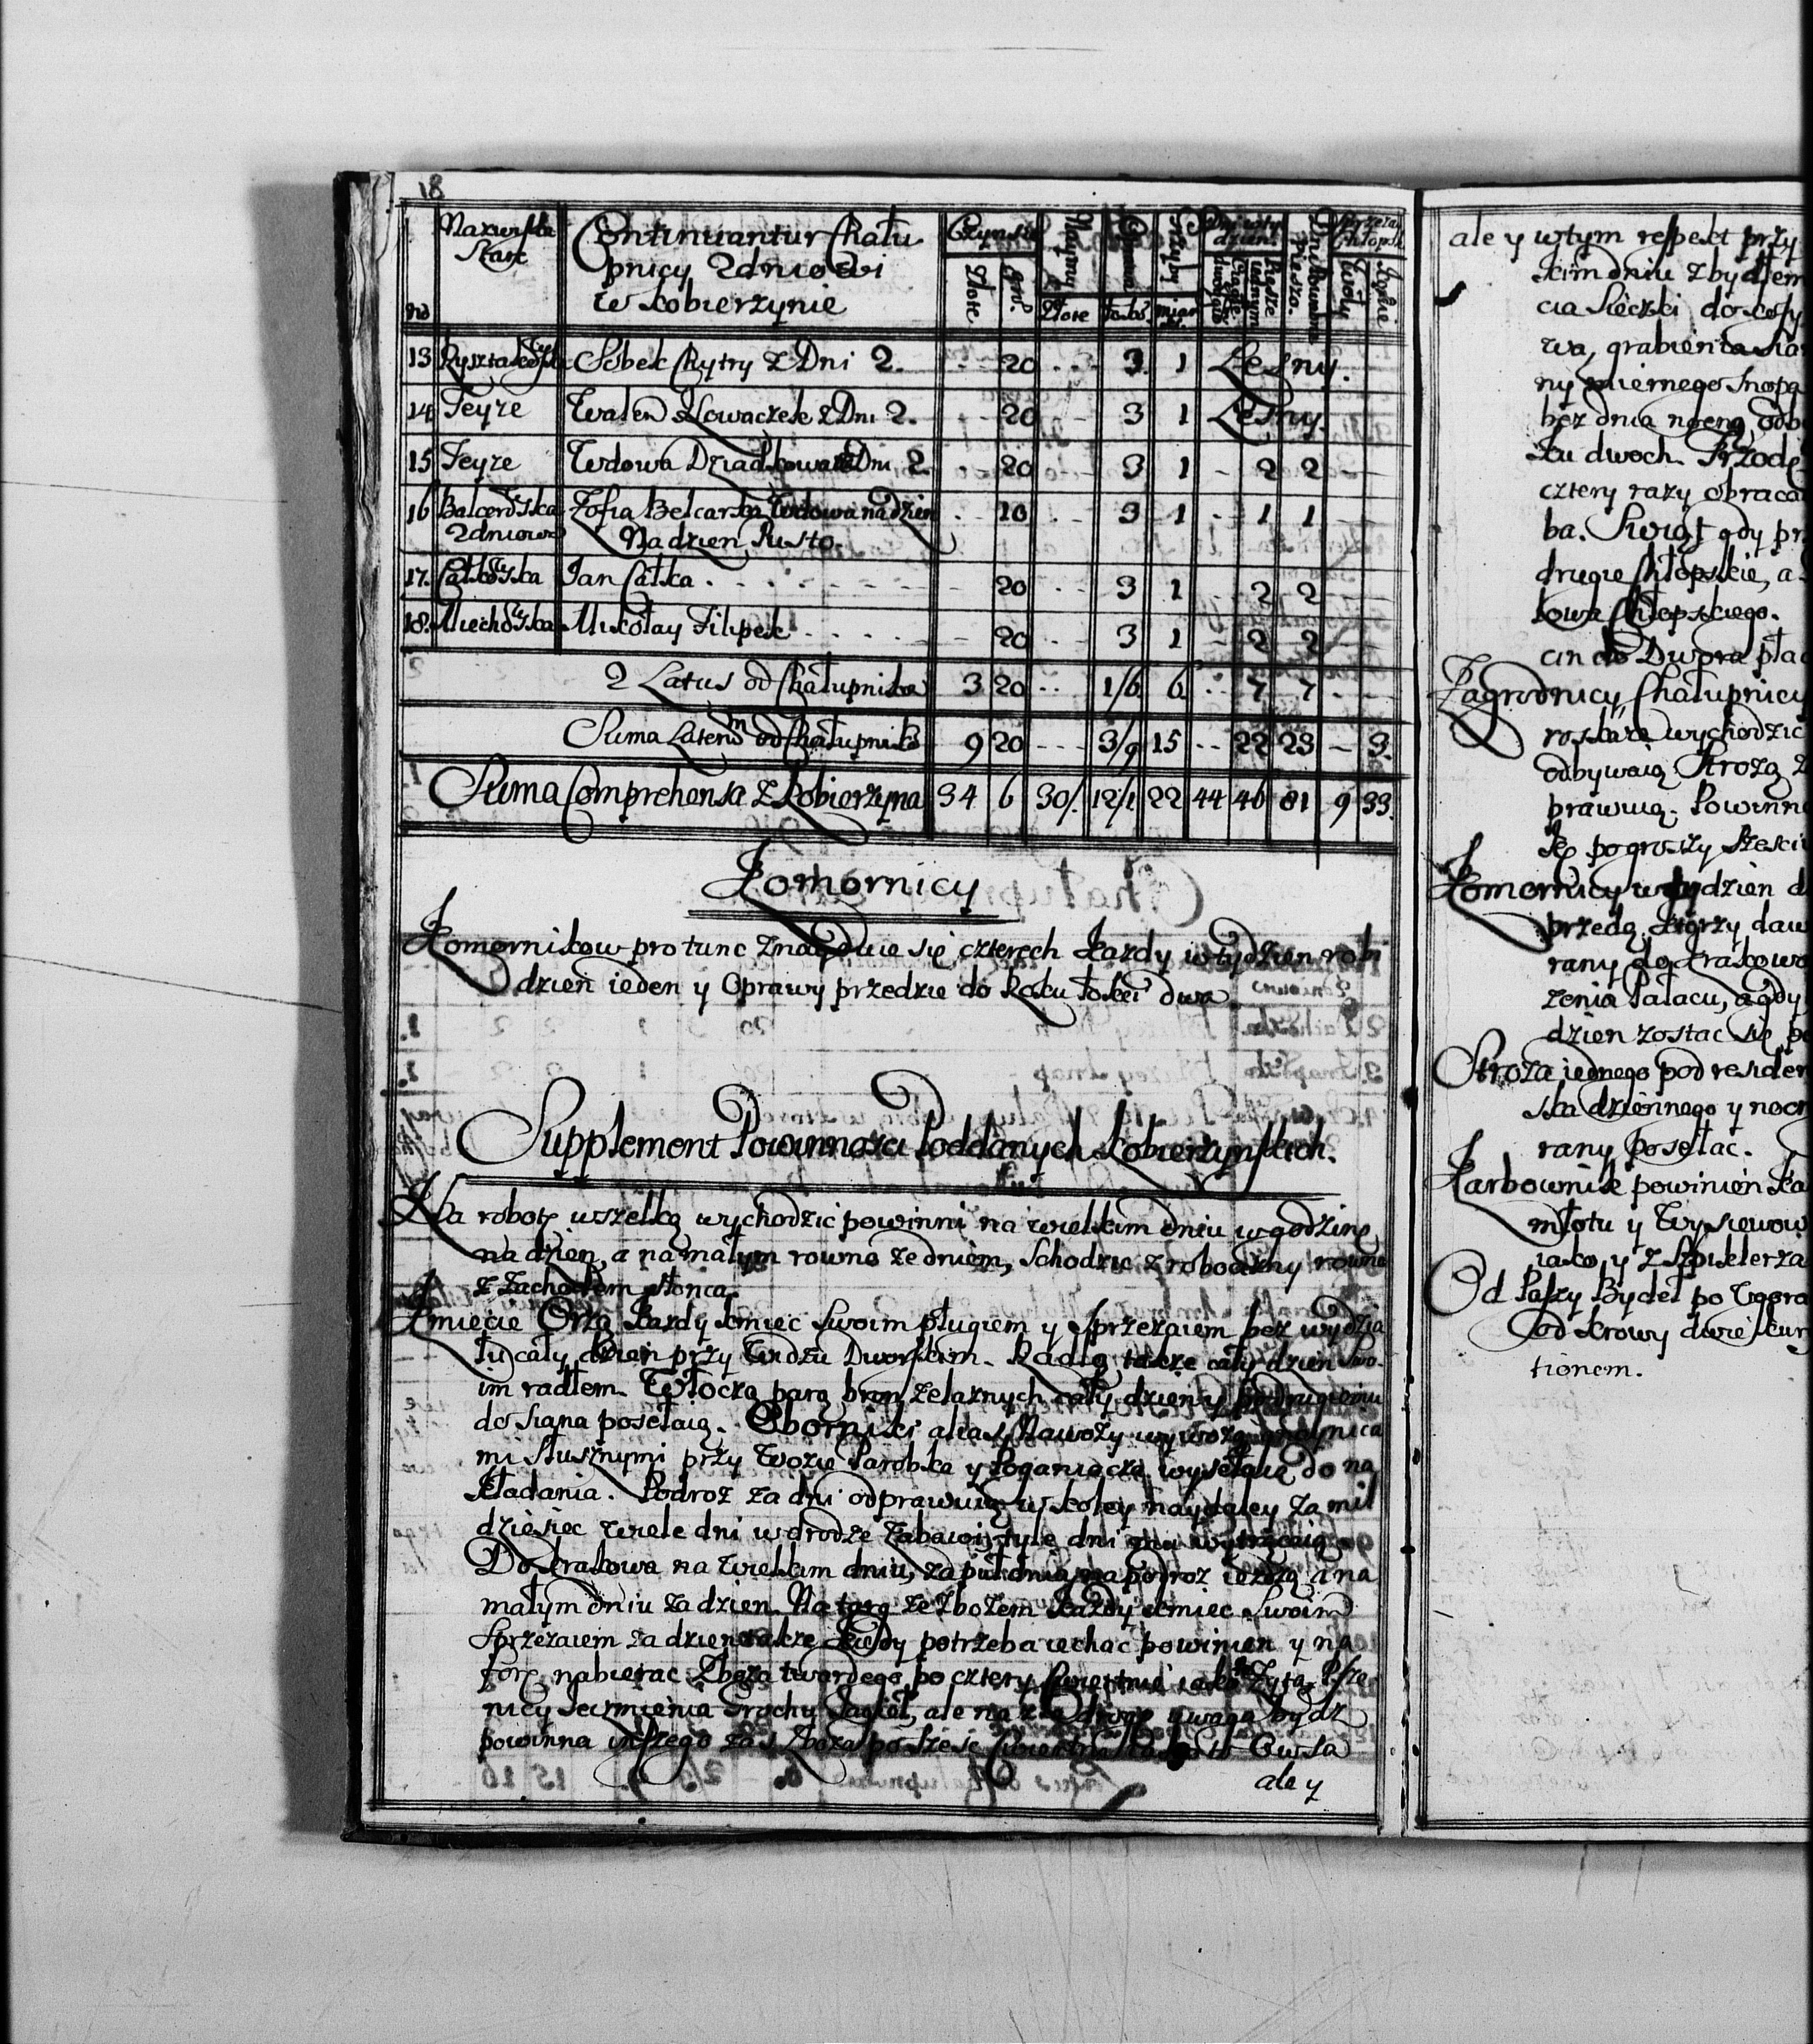 18
no
Nazwiska
Stare
Continuantur Chału
pnicy 2dniowi
w Kobierzynie
Czynsze
Złote
Gro.
Złote
Łokć.
Grzyby
miar
Dni w ty
dzień
Piesze
Pieszo.
Sprzężaj
Chłopski
Woły
Konie
13 Sobek Chytry z Dni 2. - - 20 . . - 3. 1 Leśny.
14 Teyże Walen Nowaczek z Dni 2. - - 20 - - 3 1 Leśny.
15 Teyże Wdowa Dziadkowa z Dni 2 - - 20 - - 3 1 - 2 2 - -
16 Balcerowska Zofia Belcarka Wdowa na dzień - - 10 . - 3 1 - 1 1 - -
2dniowa Na dzien Pusto.
17. Całkowska Jan Całka . - - - - 20 . - 3 1 - 2 2 - -
18. Miechowska Mikołay Filipek . . . . . - 20 . - 3 1 - 2 2 - -
2 Latus od Chałupnikow 3 20 . . 1/6 6 . . 7 7 - -
Suma Laterum od Chałupnikow 9 20 - - - 3/9 15 - - 22 23 - 3.
Suma Comprehensa z Kobierzyna 34 6 30/. 12/1 22 44 46 81 9 33.
Komornicy
Komornikow pro tunc znayduie się czterech każdy w tydzien robi
dzien ieden y Oprawy przedzie do Roku łokci dwa
Supplement Powinnosci Poddanych Kobierzynskich.
Na robotę wszelką wychodzic powinni na wielkim dniu w godzinę
na dzien, a na małym rowno ze dniem, Schodzic z robocizny rowno
z Zachodem słonca.
Kmiecie Orzą każdy kmiec Swoim pługiem y Sprzężaiem bez wydzia
łu cały dzien przy Wołu Dworskim. Radlą także cały dzien Swo-
im radłem. Włoczą parą bron żelaznych cały dzien y po drugiemu
do siana posełaią. Oborniki alias Nawozy wywożą gnoynica
mi słusznymi przy Wozie Parobka y Poganiacza wysełaią do na
kładania. Podroż za dni odprawuią w koley naydaley za mil
dziesięc wiele dni w drodze zabawi, tyle dni mu wytrącaią
Do krakowa na wielkim dniu, za puł dnia na podroż ieżdżą a na
małym dniu za dzien. Na targ ze zbożem każdy kmiec Swoim
Sprzężaiem za dzien także kiedy potrzeba iechac powinien y na
forę nabierac Zboża twardego po cztery cwiertnie iako to Żyta, Psze
nicy Jęczmienia Grochu Jagieł, ale na złą drogę uwaga bydz
powinna inszego zas Zboża po szesc cwiertni iako to Owsa
ale y
ale y w tym respekt przy
kim dniu z bydłem
cia Sieczki do
wa, grabienia sia
ny miernego Snopa
bez dnia nocną odb
ku dwoch. Przodę
cztery razy obraca
ba. gdy pr
drugie Chłopskie, a
kowa Chłopskiego.
do Dwora pła
Zagrodnicy Chałupnicy
roskaże wychodzic
odbywaią Strożą z
prawuią. Powinni
po groszy szesci
Komornicy w tydzien d
przedą którzy daw
rany do krakowa
żenia Pałacu, a gdy
dzien zostac się po
Stroża iednego pod residen
ska dziennego y nocn
rany posełac.
Karbownik powinien ka
młotu y Wysiewow
iako y z Szpiklerza
Od Paszy Bydeł po Ugora
od krowy dwie kur
tionem.